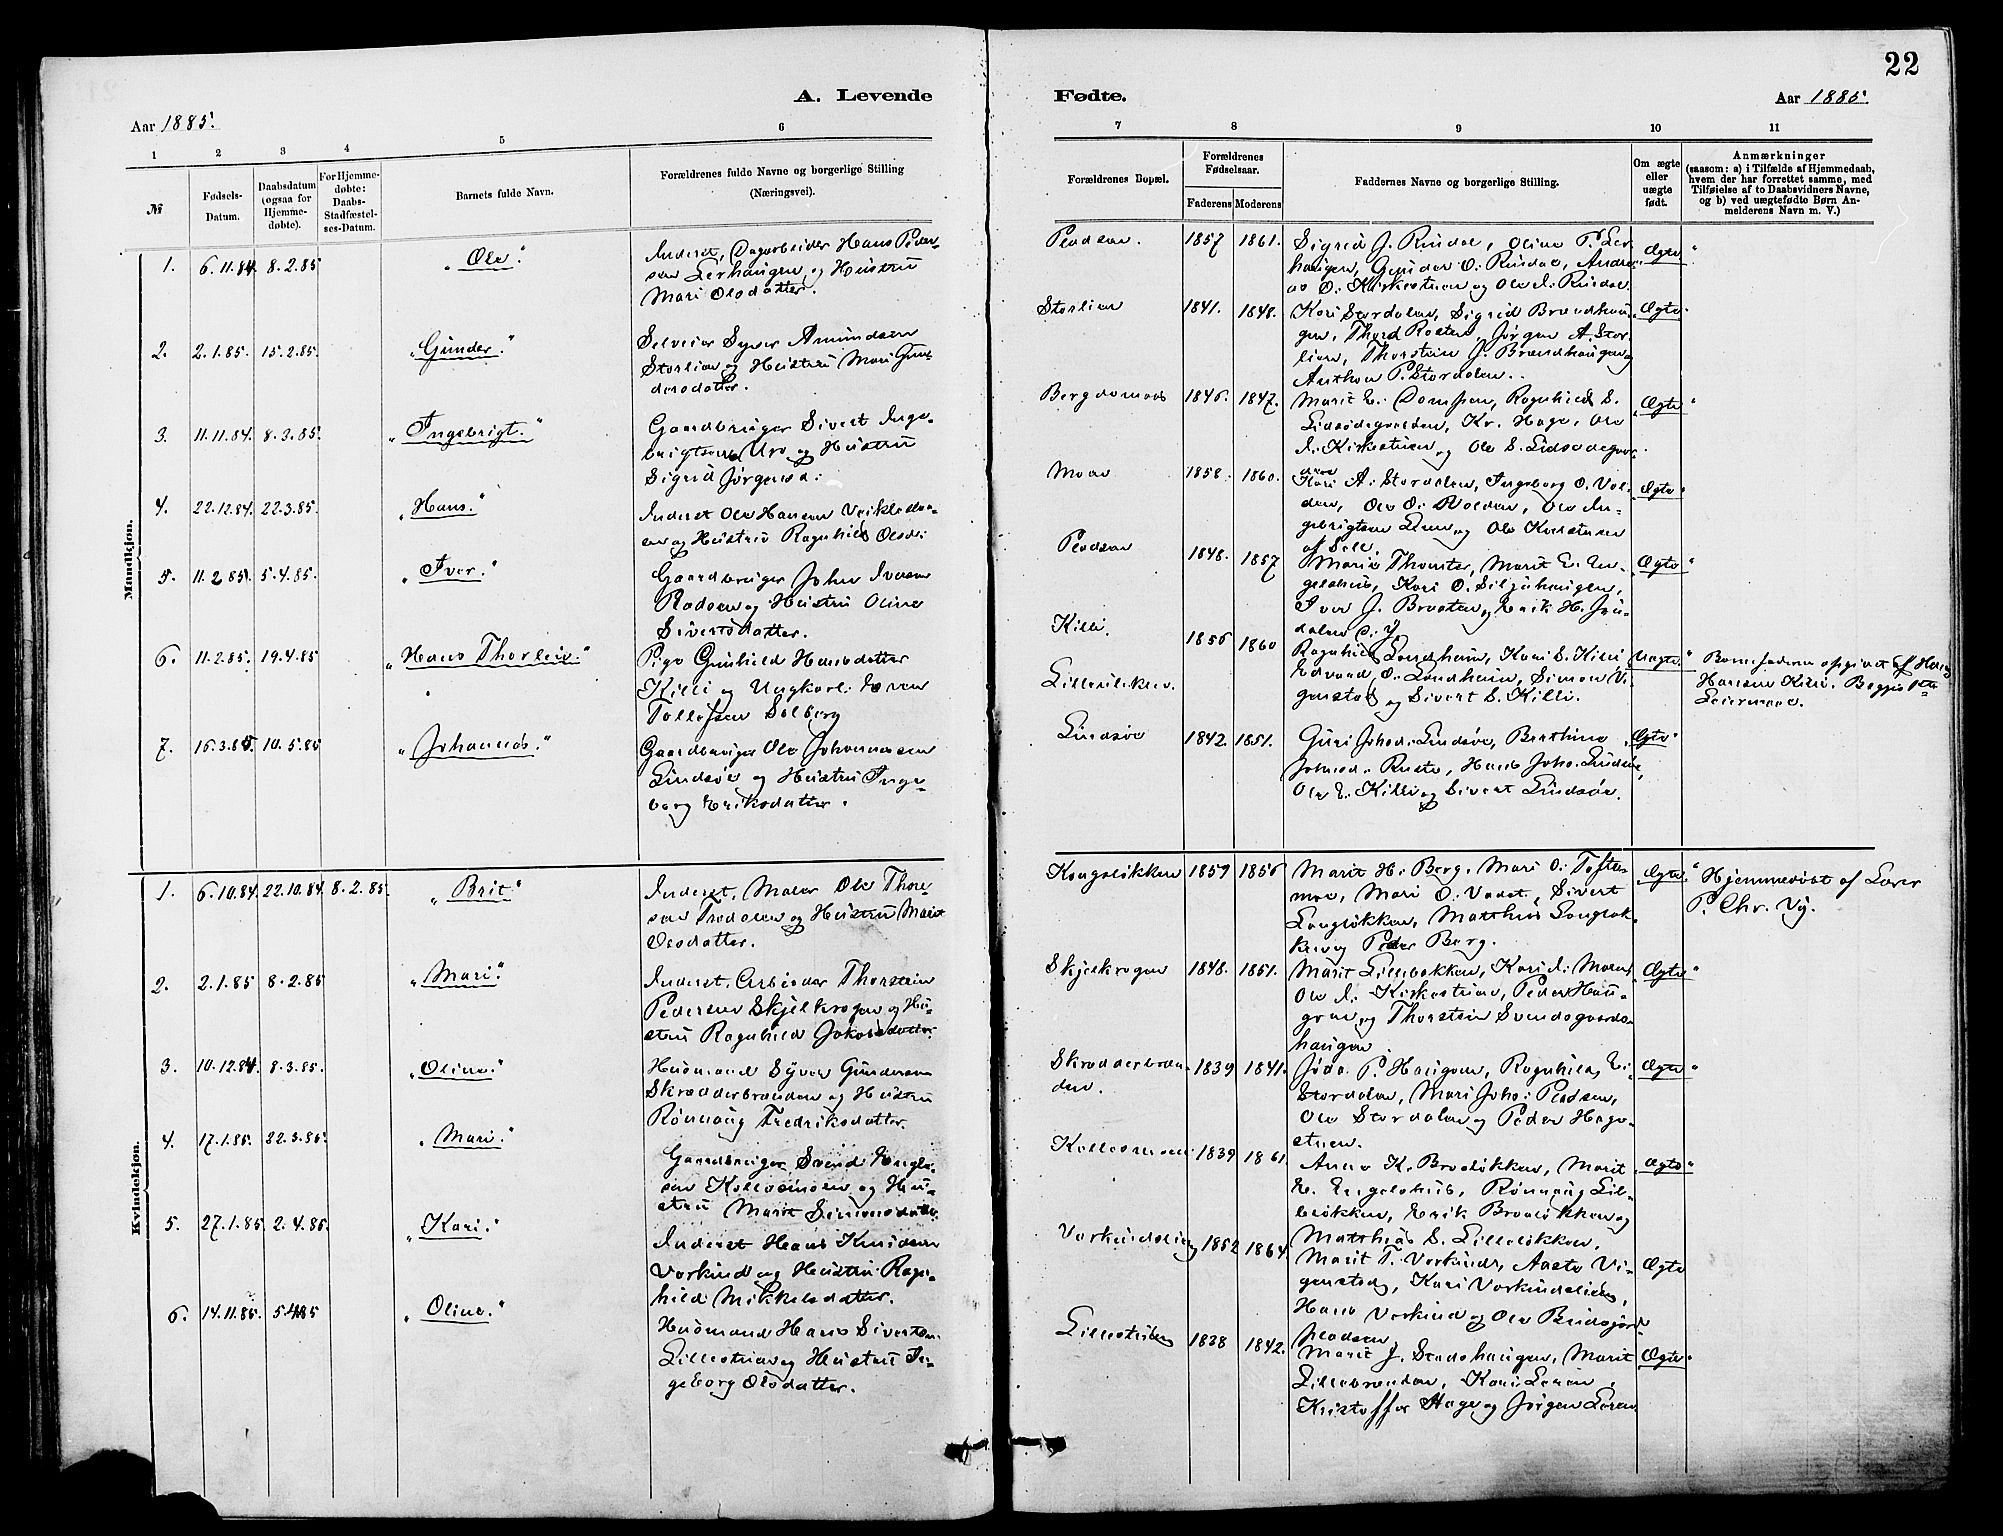 22
A. Levende
Fødte.
Aar 1885.
Aar 1885.
1 2 3 4 5 6
7 8 9 10 11
№
Fødsels-
Datum.
Daabsdatum
(ogsaa for
Hjemme-
døbte).
For Hjemme-
døbte:
Daabs-
Stadfæstel-
ses-Datum.
Barnets fulde Navn.
Forældrenes fulde Navne og borgerlige Stilling
(Næringsvei).
Forældrenes Bopæl.
Forældrenes
Fødselsaar.
Faderens
Moderens
Faddernes Navne og borgerlige Stilling.
Om ægte
eller
uægte
født.
Anmærkninger
(saasom: a) i Tilfælde af Hjemmedaab,
hvem der har forrettet samme, med
Tilføielse af to Daabsvidners Navne,
og b) ved uægtefødte Børn An-
melderens Navn m. V.)
Mandkjøn.
1. 6.11.84. 8.2.85 "Ole."
Inderst, Dagarbeider Hans Peder-
sen Lerhaugen og Hustru
Mari Olsdatter.
1857 1861.
Sigrid J. Rusdal, Olina P. Ler-
haugen, Gunder O. Rusdal, Andre-
as O. Kirkestuen og Ole J. Rusdal.
Ægte "
2. 2.1.85. 15.2.85. "Gunder."
Selveier Syver Amundsen
Storlien og Hustru Mari Gun-
dersdatter.
Storlien 1841. 1848.
Kari Stordalen, Sigrid Brændhau-
gen, Thord Rosten, Jørgen A. Stor-
lien, Thorstein J. Brændhaugen og
Anthon P. Stordalen.
Ægte "
3. 11.11.84. 8.3.85. "Ingebrigt."
Gaardbruger Sivert Inge-
brigtsen Uro og Hustru
Sigrid Jørgensd.
1846. 1847.
Kr. Hage, Ole
J. Kirkestuen og Ole S.
Ægte "
4. 22.12.84. 22.3.85. "Hans."
Inderst Ole Hansen
og Hustru Ragnhild Olsd.
Moen 1858. 1860.
Kari A. Stordalen, Ingeborg O. Vol-
den, Ole O. Volden, Ole In-
gebrigtsen Lien og Ole Knudsen
af Sell.
Ægte "
5. 11.2.85. 5.4.85. "Iver."
Gaardbruger John Iversen
og Hustru Olina
Sivertsdatter.
1848. 1857
Maria Thomter, Marit E. En-
gelshus, Kari O. Siljuhaugen,
Iver J. Braaten og Erik H. Jøn-
dalen d. y.
Ægte "
6. 11.2.85. 19.4.85 "Hans Thorleiv."
Pige Gunhild Hansdatter
Killi og Ungkarl Even
Tollefsen Solberg
Killi.
1856 1860
Ragnhild Londheim, Kari S. Killi
Edvard O. Londheim, Simon Vi-
genstad og Sivert S. Killi.
Uægte. "
Barnefaderen opgivet af Hans
Hansen Killi. Begges 1ste
Leiermaal.
7. 16.3.85. 10.5.85 "Johannes."
Gaardbruger Ole Johannessen
Lindsøe og Hustru Inge-
borg Eriksdatter.
Lindsøe 1842. 1851.
Guri Johsd. Lindsøe, Berthine
Johnsd. Ruste, Hans Joh. Lindsøe,
Ole E. Killi og Sivert Lindsøe.
Ægte "
Kvindekjøn.
1. 6.10.84. 22.10.84. 8.2.85. "Brit"
Inderst, Maler Ole Thore-
sen Tredalen og Hustru Marit
Olsdatter.
Kongsløkken 1859 1856
Marit H. Berg, Mari O. Tofte-
moe, Mari O. Vadet, Sivert
Kongsløkken, Matthis Kongsløk-
ken og Peder Berg.
Ægte. "
Hjemmedøbt af Lærer
P. Chr. Vig.
2. 2.1.85 8.2.85 "Mari."
Inderst, Arbeider Thorstein
Pedersen Skjelkrogen og Hu-
stru Ragnhild Jakobsdatter.
Skjelkrogen 1848. 1851.
Marit Lilleløkken, Kari J. Moen,
Ole J. Kirkestuen, Peder Hau-
gen og Thorstein Svendsgaards-
haugen.
Ægte "
3. 10.12.84. 8.3.85. "Oline."
Husmand Syver Gundersen
Skrædderbrænden og Hustru
Rønnaug Fredriksdatter.
Skrædderbræn-
den. 1839 1841.
P. Haugen, Ragnhild E.
Stordalen, Mari Joh.
Ole Stordalen og Peder Hage-
stuen.
Ægte "
4. 17.1.85. 22.3.85. "Mari."
Gaardbruger Svend Engls-
sen Kollosmoen og Hu-
stru Marit Simensdatter.
1839 1861.
Anne K. Breeløkken, Marit
E. Engelshus, Rønnaug Lil-
leløkken, Erik Breeløkken og
Matthis S. Lilleløkken.
Ægte "
5. 27.1.85 2.4.85. "Kari."
Inderst Hans Knudsen
Vorkind og Hustru Ragn-
hild Mikkelsdatter.
1852 1864.
Marit T. Vorkind, Aaste Vi-
genstad, Kari Vorkindslien,
Hans Vorkind og Ole
Ægte
6. 14.11.85. 5.4.85 "Oline."
Husmand Hans Sivertsen
Lillestuen og Hustru In-
geborg Olsdatter.
Lillestuen 1838 1842.
Marit J. Stadshaugen, Marit
Lillebrænden, Kari Loren,
Kristoffer Hage og Jørgen Loren.
Ægte "